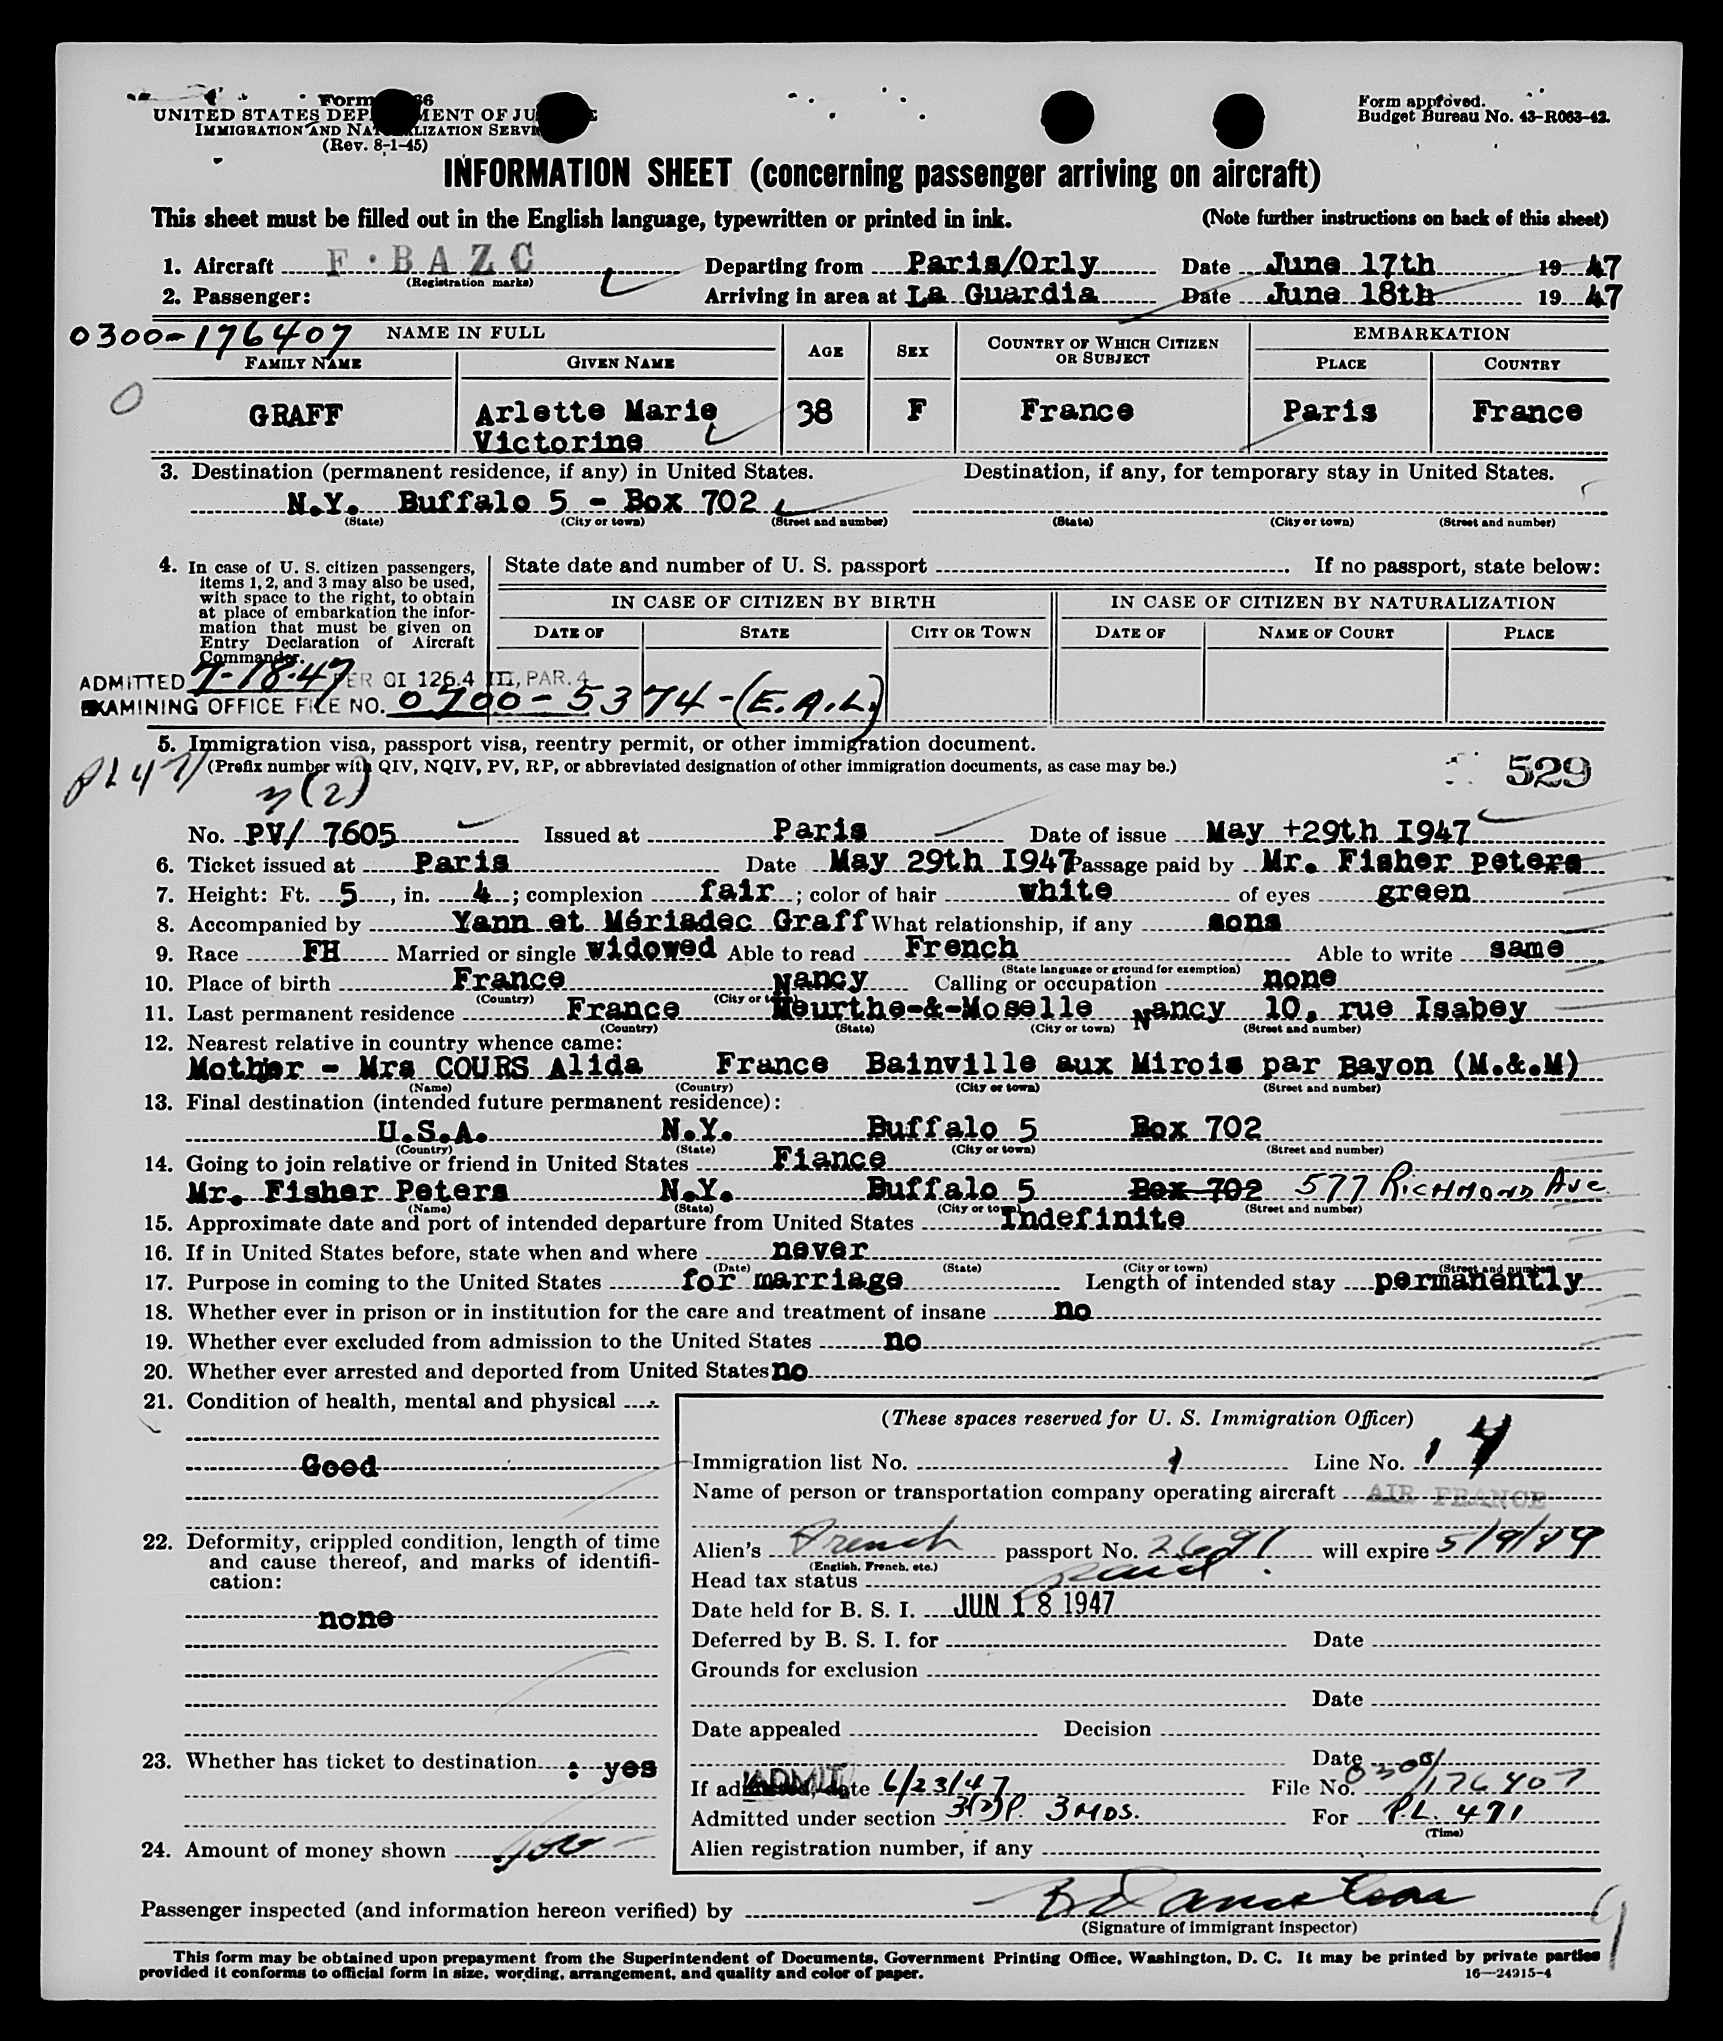 Form 66
UNITED STATES DEPARTMENT OF JUSTICE
IMMIGRATION AND NATURALIZATION SERVICE
(Rev. 8-1-45)
Form approved.
Budget Bureau No. 43-R063-42.
INFORMATION SHEET (concerning passenger arriving on aircraft)
This sheet must be filled out in the English language, typewritten or printed in ink. (Note further instructions on back of this sheet)
1. Aircraft F·BAZC Departing from Paris/Orly Date June 17th 1947
(Registration marks)
2. Passenger: Arriving in area at La Guardia Date June 18th 1947
0300-176407 NAME IN FULL AGE SEX COUNTRY OF WHICH CITIZEN OR SUBJECT EMBARKATION
FAMILY NAME GIVEN NAME PLACE COUNTRY
0
GRAFF Arlette Marie 38 F France Paris France
Victorine
3. Destination (permanent residence, if any) in United States. Destination, if any, for temporary stay in United States.
N.Y. Buffalo 5 - Box 702
(State) (City or town) (Street and number) (State) (City or town) (Street and number)
4. In case of U. S. citizen passengers, items 1, 2, and 3 may also be used, with space to the right, to obtain at place of embarkation the information that must be given on Entry Declaration of Aircraft Commander.
State date and number of U. S. passport If no passport, state below:
IN CASE OF CITIZEN BY BIRTH IN CASE OF CITIZEN BY NATURALIZATION
DATE OF STATE CITY OR TOWN DATE OF NAME OF COURT PLACE
ADMITTED 7-18-47 PER OI 126.4 III, PAR. 4
EXAMINING OFFICE FILE NO. 0700-5374-(E.A.L.)
5. Immigration visa, passport visa, reentry permit, or other immigration document.
(Prefix number with QIV, NQIV, PV, RP, or abbreviated designation of other immigration documents, as case may be.)
PL 471
(2)
529
No. PV/ 7605 Issued at Paris Date of issue May +29th I947
6. Ticket issued at Paris Date May 29th I947 Passage paid by Mr. Fisher peters
7. Height: Ft. 5, in. 4; complexion fair; color of hair white of eyes green
8. Accompanied by Yann et Mériadec Graff What relationship, if any sons
9. Race FH Married or single widowed Able to read French Able to write same
(State language or ground for exemption)
10. Place of birth France Nancy Calling or occupation none
(Country) (City or town)
11. Last permanent residence France Meurthe-&-Moselle Nancy 10, rue Isabey
(Country) (State) (City or town) (Street and number)
12. Nearest relative in country whence came:
Mother - Mrs COURS Alida France Bainville aux Mirois par Bayon (M.&.M)
(Name) (Country) (City or town) (Street and number)
13. Final destination (intended future permanent residence):
U.S.A. N.Y. Buffalo 5 Box 702
(Country) (State) (City or town) (Street and number)
14. Going to join relative or friend in United States Fiance
Mr. Fisher Peters N.Y. Buffalo 5 Box 702 577 RICHMOND AVE.
(Name) (State) (City or town) (Street and number)
15. Approximate date and port of intended departure from United States Indefinite
16. If in United States before, state when and where never
(Date) (State) (City or town) (Street and number)
17. Purpose in coming to the United States for marriage Length of intended stay permanently
18. Whether ever in prison or in institution for the care and treatment of insane no
19. Whether ever excluded from admission to the United States no
20. Whether ever arrested and deported from United States no
21. Condition of health, mental and physical
Good
22. Deformity, crippled condition, length of time and cause thereof, and marks of identification:
none
23. Whether has ticket to destination : yes
24. Amount of money shown
(These spaces reserved for U. S. Immigration Officer)
Immigration list No. 1 Line No. 1 4
Name of person or transportation company operating aircraft AIR FRANCE
Alien's French passport No. 2691 will expire 5/9/49
(English, French, etc.)
Head tax status paid
Date held for B. S. I. JUN 18 1947
Deferred by B. S. I. for Date
Grounds for exclusion
Date
Date appealed Decision
Date
If admitted, date ADMIT 6/23/47 File No. 0300/176407
Admitted under section 3(2)P. 3 MOS. For P.L. 471
(Time)
Alien registration number, if any
Passenger inspected (and information hereon verified) by
(Signature of immigrant inspector)
This form may be obtained upon prepayment from the Superintendent of Documents, Government Printing Office, Washington, D. C. It may be printed by private parties
provided it conforms to official form in size, wording, arrangement, and quality and color of paper. 16—24915-4